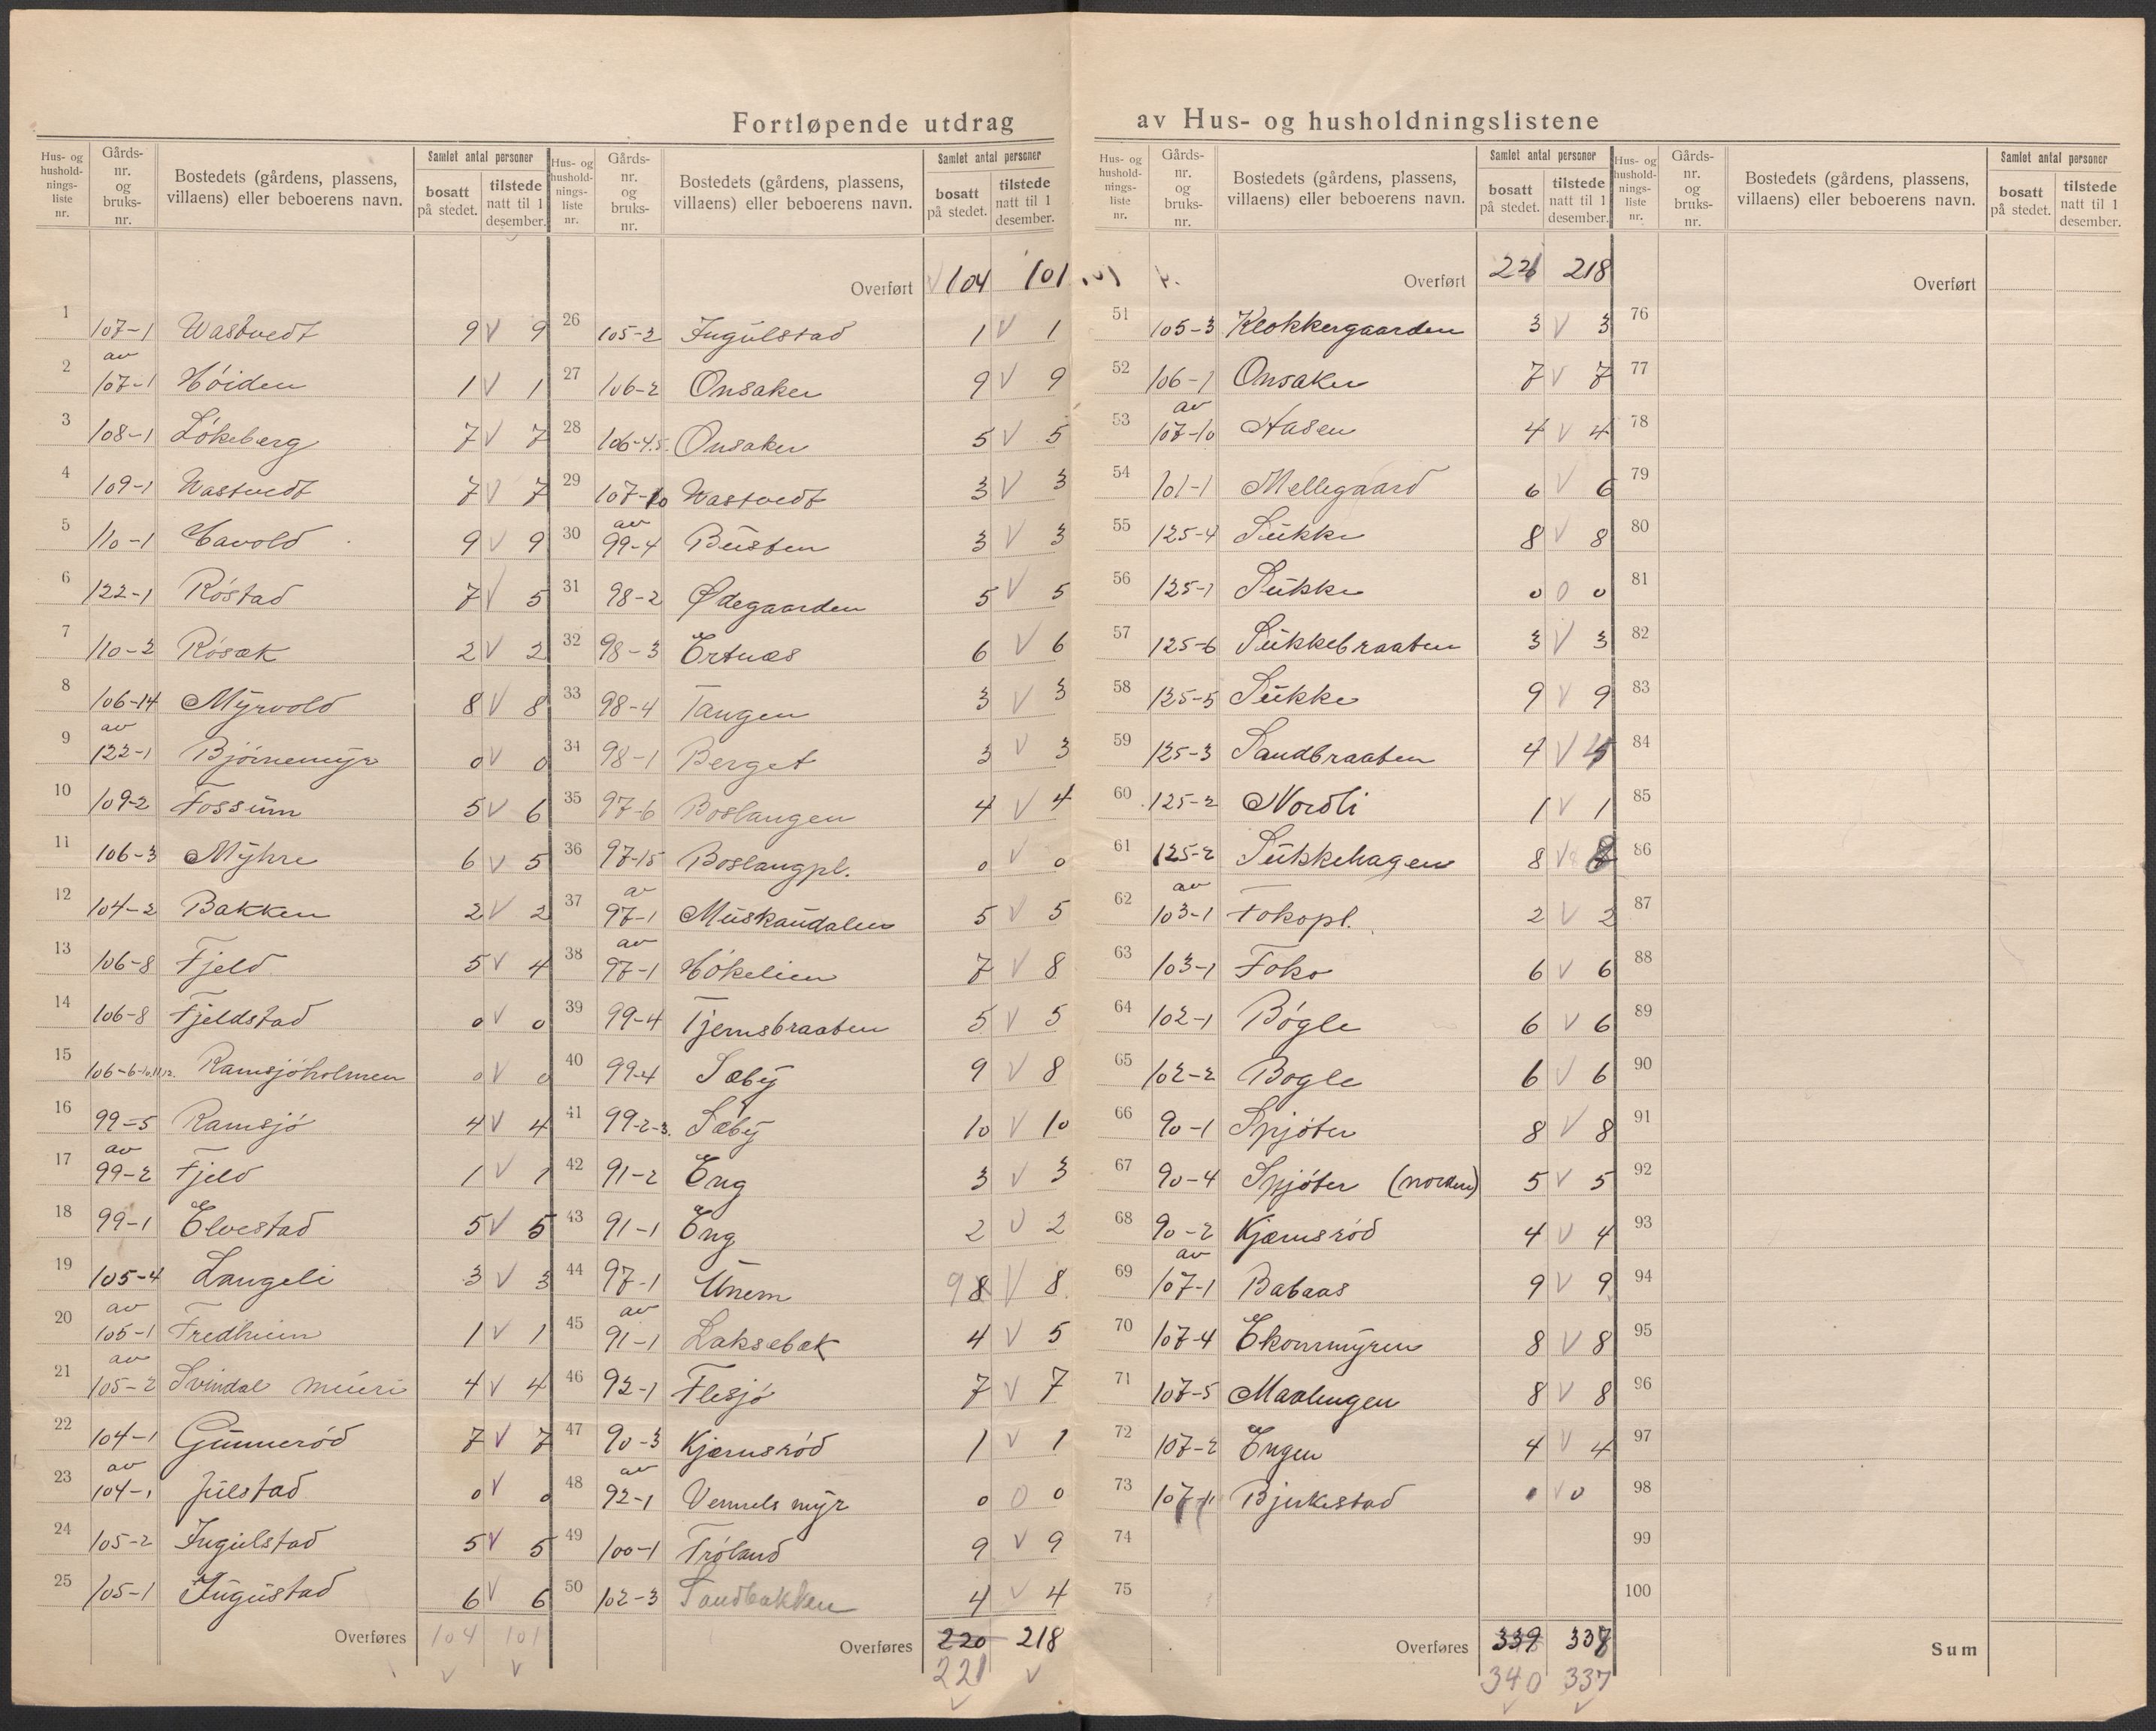 Fortløpende utdrag av Hus- og husholdningslistene
Hus- og hushold-nings-liste nr. | Gårds-nr. og bruks-nr. | Bostedets (gårdens, plassens, villaens) eller beboerens navn. | Samlet antal personer | bosatt på stedet. | tilstede natt til 1 desember.
1 107-1 Wastvedt 9 V 9
2 av 107-1 Höiden 1 V 1
3 108-1 Lökeberg 7 V 7
4 109-1 Wastvedt 7 V 7
5 110-1 Havold 9 V 9
6 122-1 Röstad 7 V 5
7 110-2 Rösæk 2 V 2
8 106-14 Myrvold 8 V 8
9 av 122-1 Bjørnemyr 0 V 0
10 109-2 Fossum 5 V 6
11 106-3 Myhre 6 V 5
12 104-2 Bakken 2 V 2
13 106-8 Fjeld 5 V 4
14 106-8 Fjeldstad 0 V 0
15 106-6-10,11,12. Ramsjöholmen 0 V 0
16 99-5 Ramsjö 4 V 4
17 av 99-2 Fjeld 1 V 1
18 99-1 Elvestad 5 V 5
19 105-4 Langeli 3 V 3
20 av 105-1 Fredheim 1 V 1
21 av 105-2 Svindal meieri 4 V 4
22 104-1 Gunneröd 7 V 7
23 av 104-1 Julstad 0 V 0
24 105-2 Ingulstad 5 V 5
25 105-1 Ingustad 6 V 6
Overføres 104 101
Hus- og hushold-nings-liste nr. | Gårds-nr. og bruks-nr. | Bostedets (gårdens, plassens, villaens) eller beboerens navn. | Samlet antal personer | bosatt på stedet. | tilstede natt til 1 desember.
Overført V 104 101
26 105-2 Ingulstad 1 V 1
27 106-2 Onsaker 9 V 9
28 106-4.5. Onsaker 5 V 5
29 107-10 Wastvedt 3 V 3
30 av 99-4 Busten 3 V 3
31 98-2 Ødegaarden 5 V 5
32 98-3 Ertnæs 6 V 6
33 98-4 Tangen 3 V 3
34 98-1 Berget 3 V 3
35 97-6 Boslangen 4 V 4
36 97-15 Boslangpl. 0 V 0
37 av 97-1 Muskaudalen 5 V 5
38 av 97-1 Hökelien 7 V 8
39 99-4 Tjernsbraaten 5 V 5
40 99-4 Sæby 9 V 8
41 99-2-3. Sæby 10 V 10
42 91-2 Eng 3 V 3
43 91-1 Eng 2 V 2
44 97-1 Unem 9 8 V 8
45 av 91-1 Laksebæk 4 V 5
46 92-1 Flesjö 7 V 7
47 90-3 Kjærnsröd 1 V 1
48 av 92-1 Vennelsmyr 0 0 0
49 100-1 Tröland 9 V 9
50 102-3 Sandbakken 4 V 4
Overføres 220 218
221
Hus- og hushold-nings-liste nr. | Gårds-nr. og bruks-nr. | Bostedets (gårdens, plassens, villaens) eller beboerens navn. | Samlet antal personer | bosatt på stedet. | tilstede natt til 1 desember.
Overført 221 218
51 105-3 Klokkergaarden 3 V 3
52 106-1 Onsaker 7 V 7
53 av 107-10 Aasen 4 V 4
54 101-1 Mellegaard 6 V 6
55 125-4 Sukke 8 V 8
56 125-1 Sukke 0 0 0
57 125-6 Sukkebraaten 3 V 3
58 125-5 Sukke 9 V 9
59 125-3 Sandbraaten 4 V
60 125-2 Nordli 1 V 1
61 125-2 Sukkehagen 8 V 8
62 av 103-1 Fokopl. 2 V 2
63 103-1 Foko 6 V 6
64 102-1 Bögle 6 V 6
65 102-2 Bögle 6 V 6
66 90-1 Spjöter 8 V 8
67 90-4 Spjöter (nordre) 5 V 5
68 90-2 Kjærnsröd 4 V 4
69 av 107-1 Babaas 9 V 9
70 107-4 Ekornmyren 8 V 8
71 107-5 Maalingen 8 V 8
72 107-2 Engen 4 V 4
73 107-11 Bjerkestad V 0
74
75
Overføres 339 338
340 337
Hus- og hushold-nings-liste nr. | Gårds-nr. og bruks-nr. | Bostedets (gårdens, plassens, villaens) eller beboerens navn. | Samlet antal personer | bosatt på stedet. | tilstede natt til 1 desember.
Overført
76
77
78
79
80
81
82
83
84
85
86
87
88
89
90
91
92
93
94
95
96
97
98
99
100
Sum